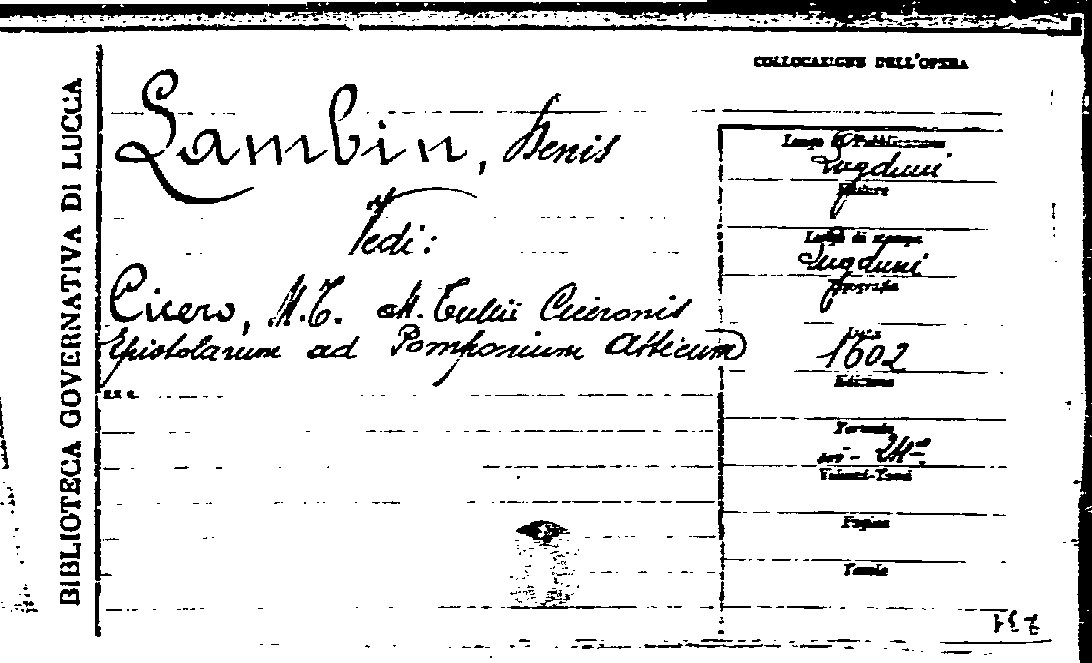 BIBLIOTECA GOVERNATIVA DI LUCCA
COLLOCAZIONE DELL'OPERA
Lambin, Denis
Vedi:
Cicero, M.T. M. Tullii Ciceronis
Epistolarum ad Pomponium Atticum
Luogo di Pubblicazione
Lugduni
Editore
Luogo di stampa
Lugduni
Tipografia
1602
Edizione
Formato
24°
Volumi-Tomi
Pagine
Tavole